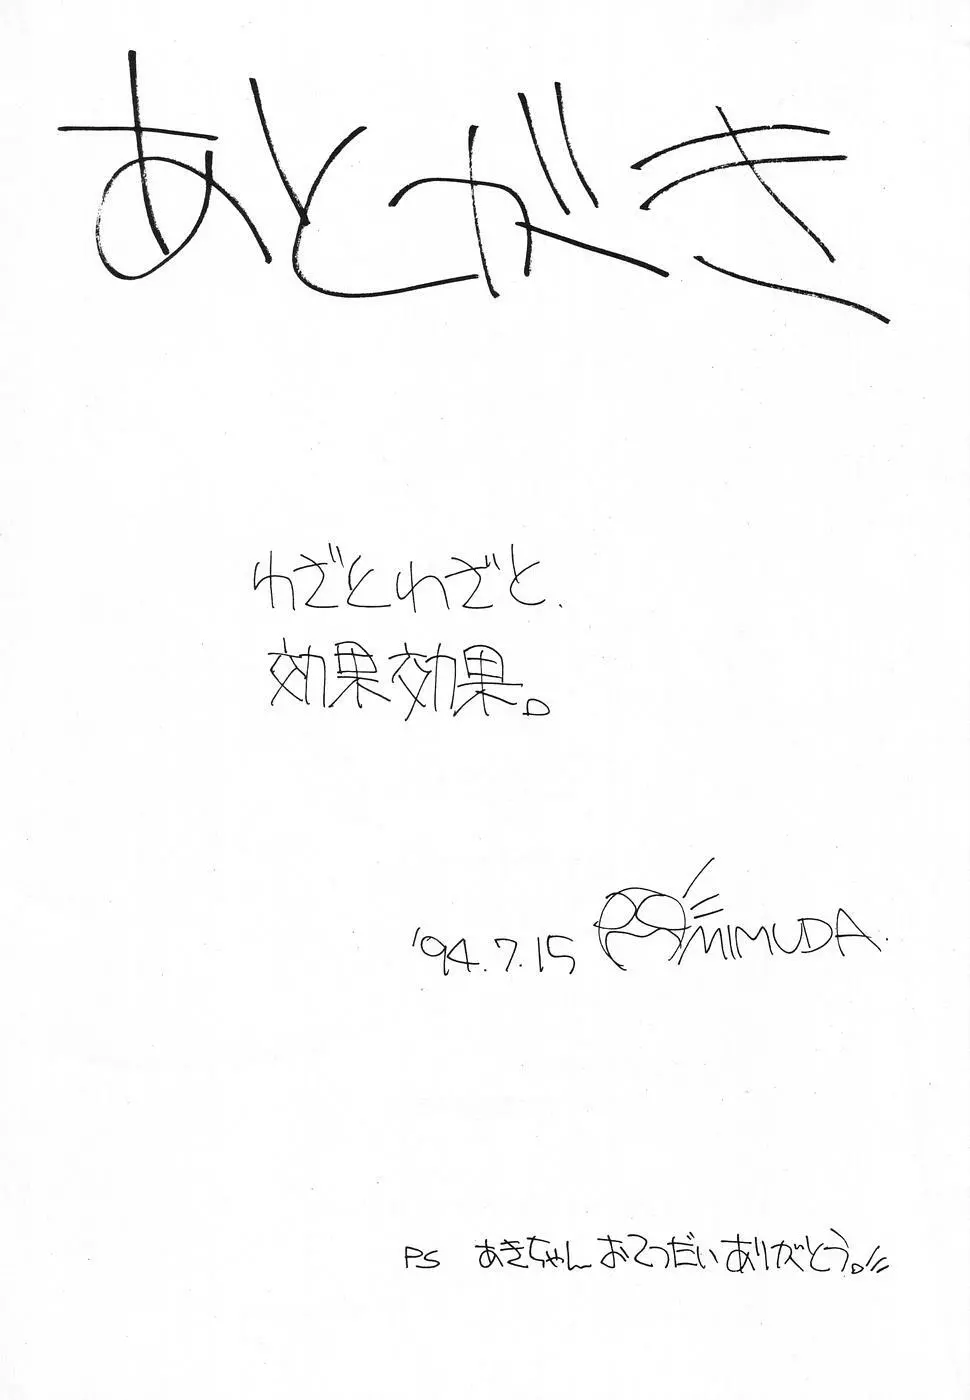 あとがき
わざとわざと.
効果効果。
'94.7.15 MIMUDA.
PS あきちゃんおてつだいありがとう。!!